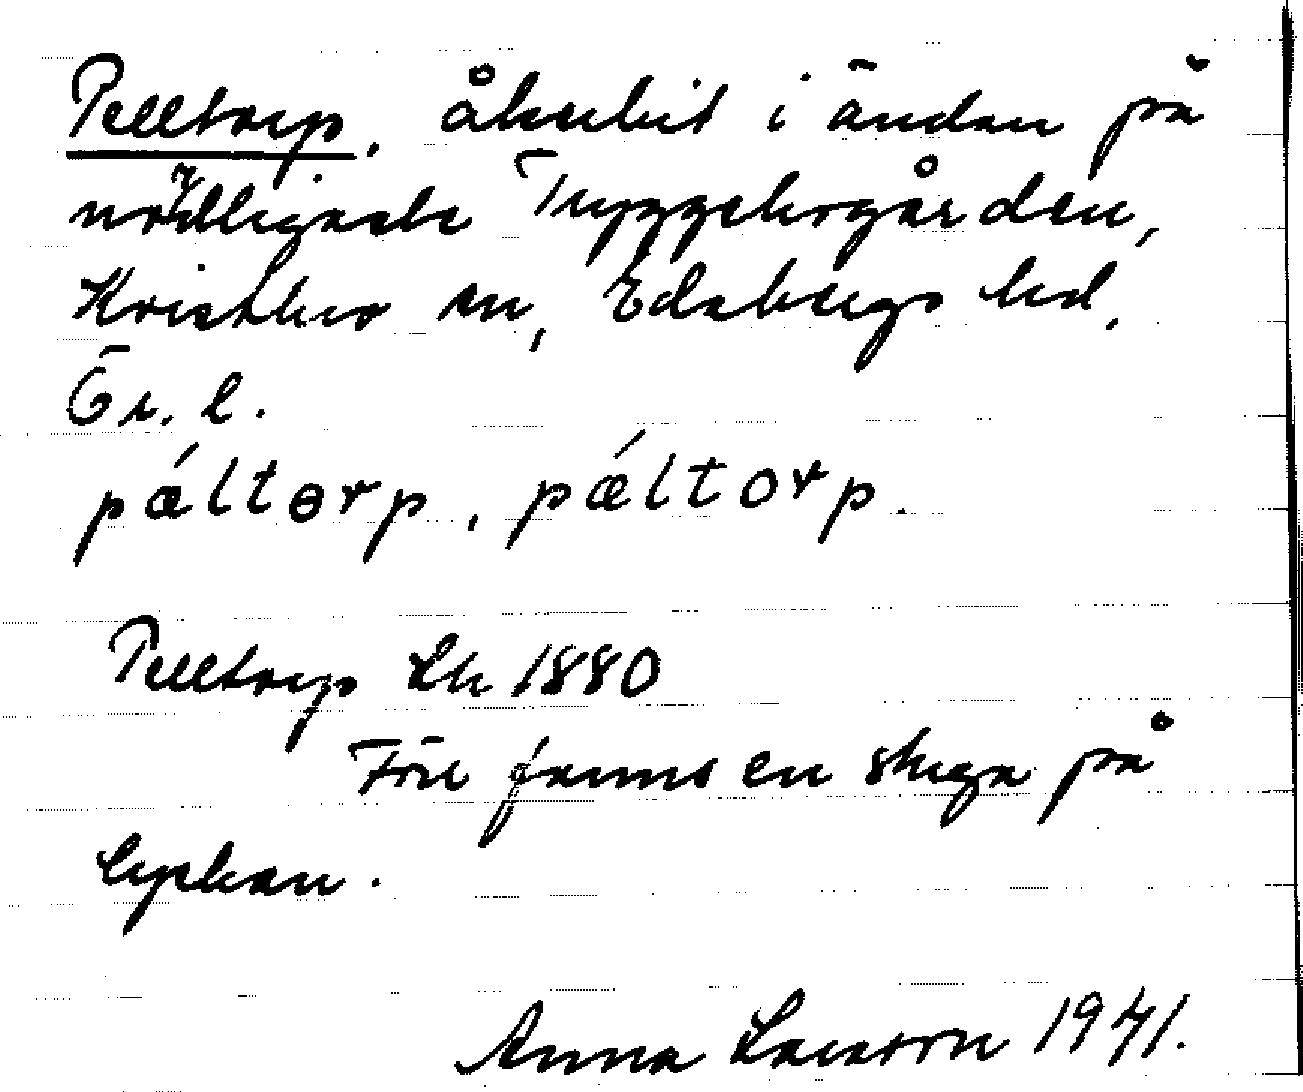 Pelltorp, åkerbit i ändan på
nordligaste Tryggebogården,
Kvistbro sn, Edsbergs hd,
Ör. l.
pǽltɵrp, pǽltorp.
Pelltorp Lk 1880
Förr fanns en stuga på
lyckan.
Anna Larsson 1941.